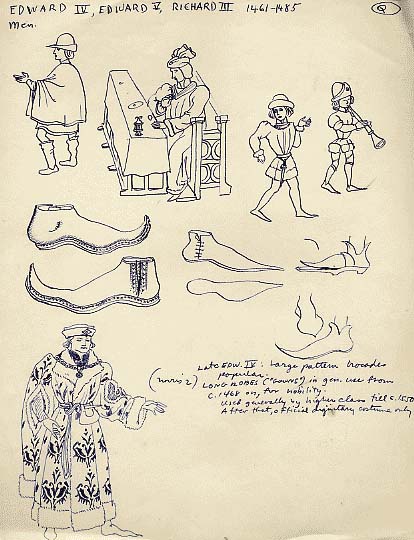 EDWARD IV, EDWARD V, RICHARD III 1461-1485
Q
Men.
Late EDW. IV: Large pattern brocades
popular.
(Norris 2) LONG ROBES ("GOWNS") in gen. use from
c. 1468 on, for nobility.
Used generally by higher class till c. 1550
After that, official dignitary costume only